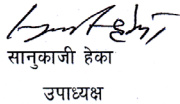 सानुकाजी हेका
उपाध्यक्ष